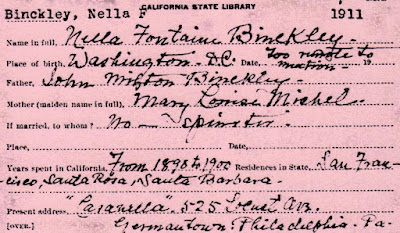 CALIFORNIA STATE LIBRARY
Binckley, Nella F 1911
Name in full, Nella Fontaine Binckley-
Place of birth, Washington - D.C. Date, too remote to mention - 19
Father, John Milton Binckley-
Mother (maiden name in full), Mary Louise Michel.
If married, to whom? No - spinster.
Place, Date,
Years spent in California, From 1898 to 1900 Residences in State, San Fran-
cisco, Santa Rosa, Santa Barbara-
Present address, 525 Locust Av.
[OVER.] Germantown: Philadelphia - Pa-